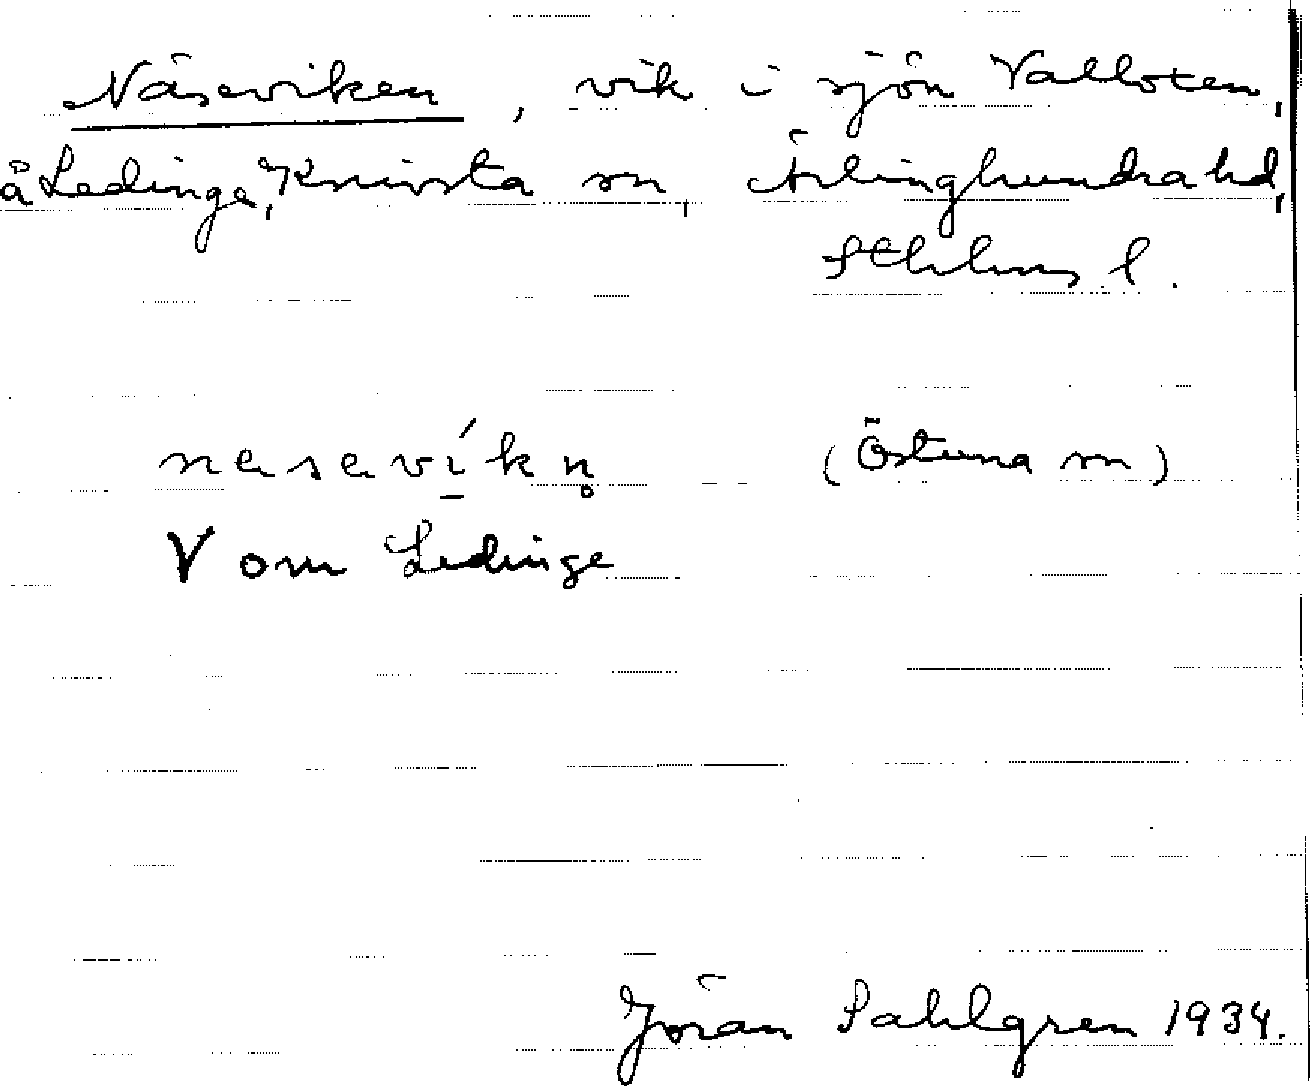 Näseviken, vik i sjön Valloxen,
å Ledinge, Knivsta sn, Ärlinghundra hd,
Sthlms l.
nesevı́kn̥ (Östuna sn)
V om Ledinge
Jöran Sahlgren 1934.